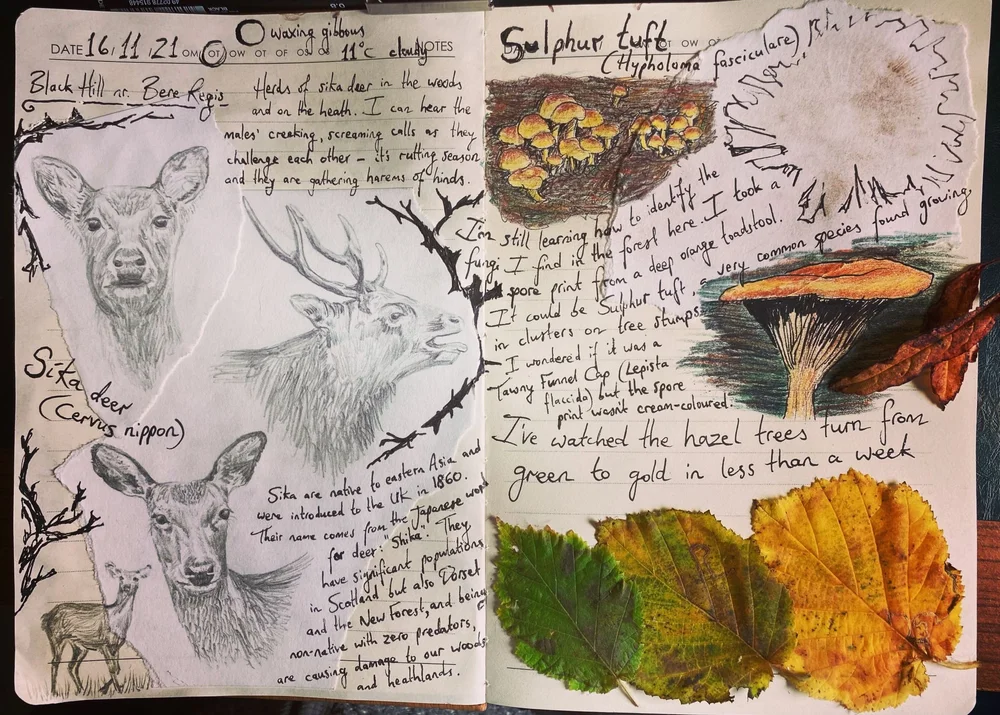 waxing gibbous
DATE 16/11/21 OM OT OW OT OF OS OS 11°C cloudy NOTES
Black Hill nr. Bere Regis
Herds of sika deer in the woods
and on the heath. I can hear the
males' creaking, screaming calls as they
challenge each other – it's rutting season
and they are gathering harems of hinds.
Sika deer
(Cervus nippon)
Sika are native to eastern Asia and
were introduced to the UK in 1860.
Their name comes from the Japanese word
for deer: "Shika". They
have significant populations
in Scotland but also Dorset
and the New Forest, and being
non-native with zero predators,
are causing damage to our woods
and heathlands.
Sulphur tuft
(Hypholoma fasciculare)
OT OW
I'm still learning how to identify the
fungi I find in the forest here. I took a
spore print from a deep orange toadstool.
It could be Sulphur tuft, a very common species found growing
in clusters on tree stumps.
I wondered if it was a
Tawny Funnel Cap (Lepista
flaccida) but the spore
print wasn't cream-coloured.
I've watched the hazel trees turn from
green to gold in less than a week